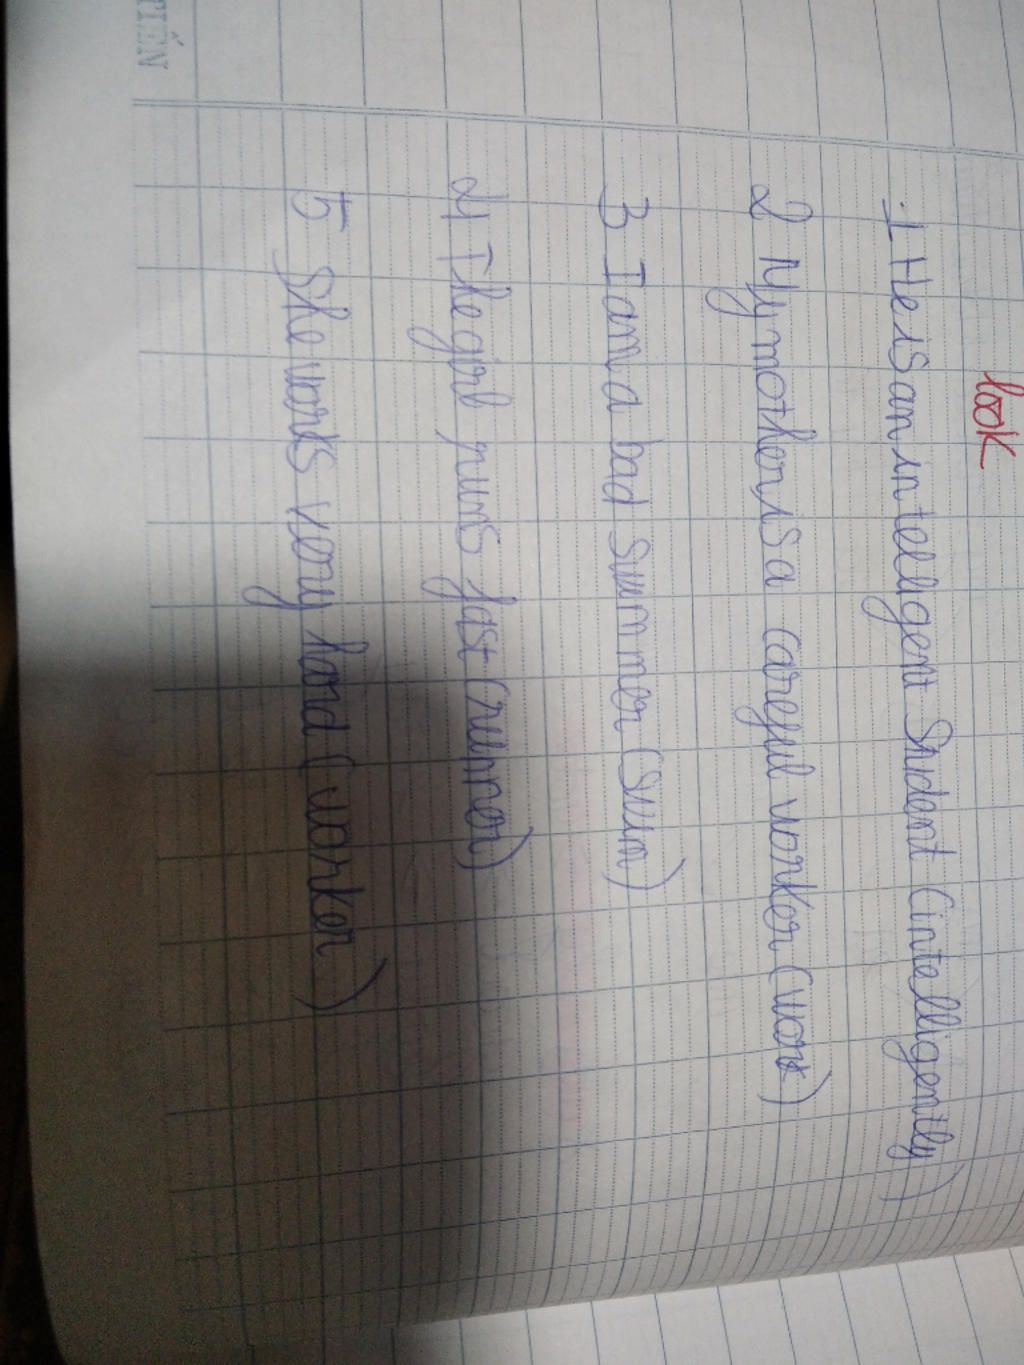 look
1 He is an intelligent Student (intelligently)
2 My mother is a careful worker (work)
3 I am a bad swimmer (swim)
4 The girl runs fast (runner)
5 She works very hard (worker)
TIÊN